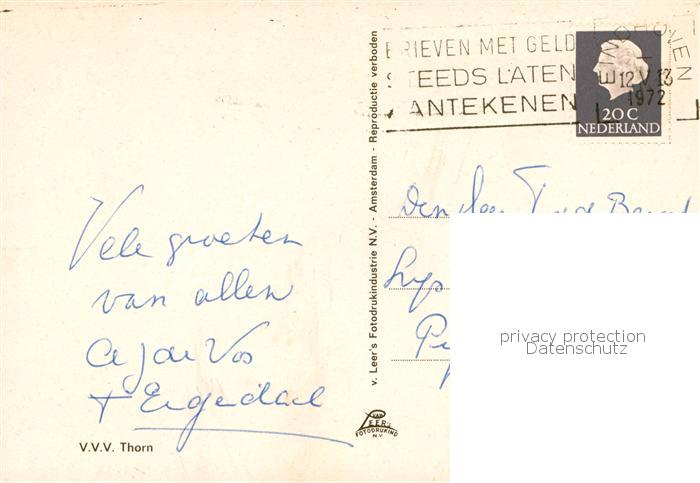 BRIEVEN MET GELD
STEEDS LATEN
AANTEKENEN
EINDHOVEN
12 V 13
1972
20 C
NEDERLAND
v. Leer's Fotodrukindustrie N.V. - Amsterdam - Reproductie verboden
Vele groeten
van allen
de Vos
den heer
privacy protection
Datenschutz
VAN
LEER'S
FOTODRUKIND
N.V.
V.V.V. Thorn